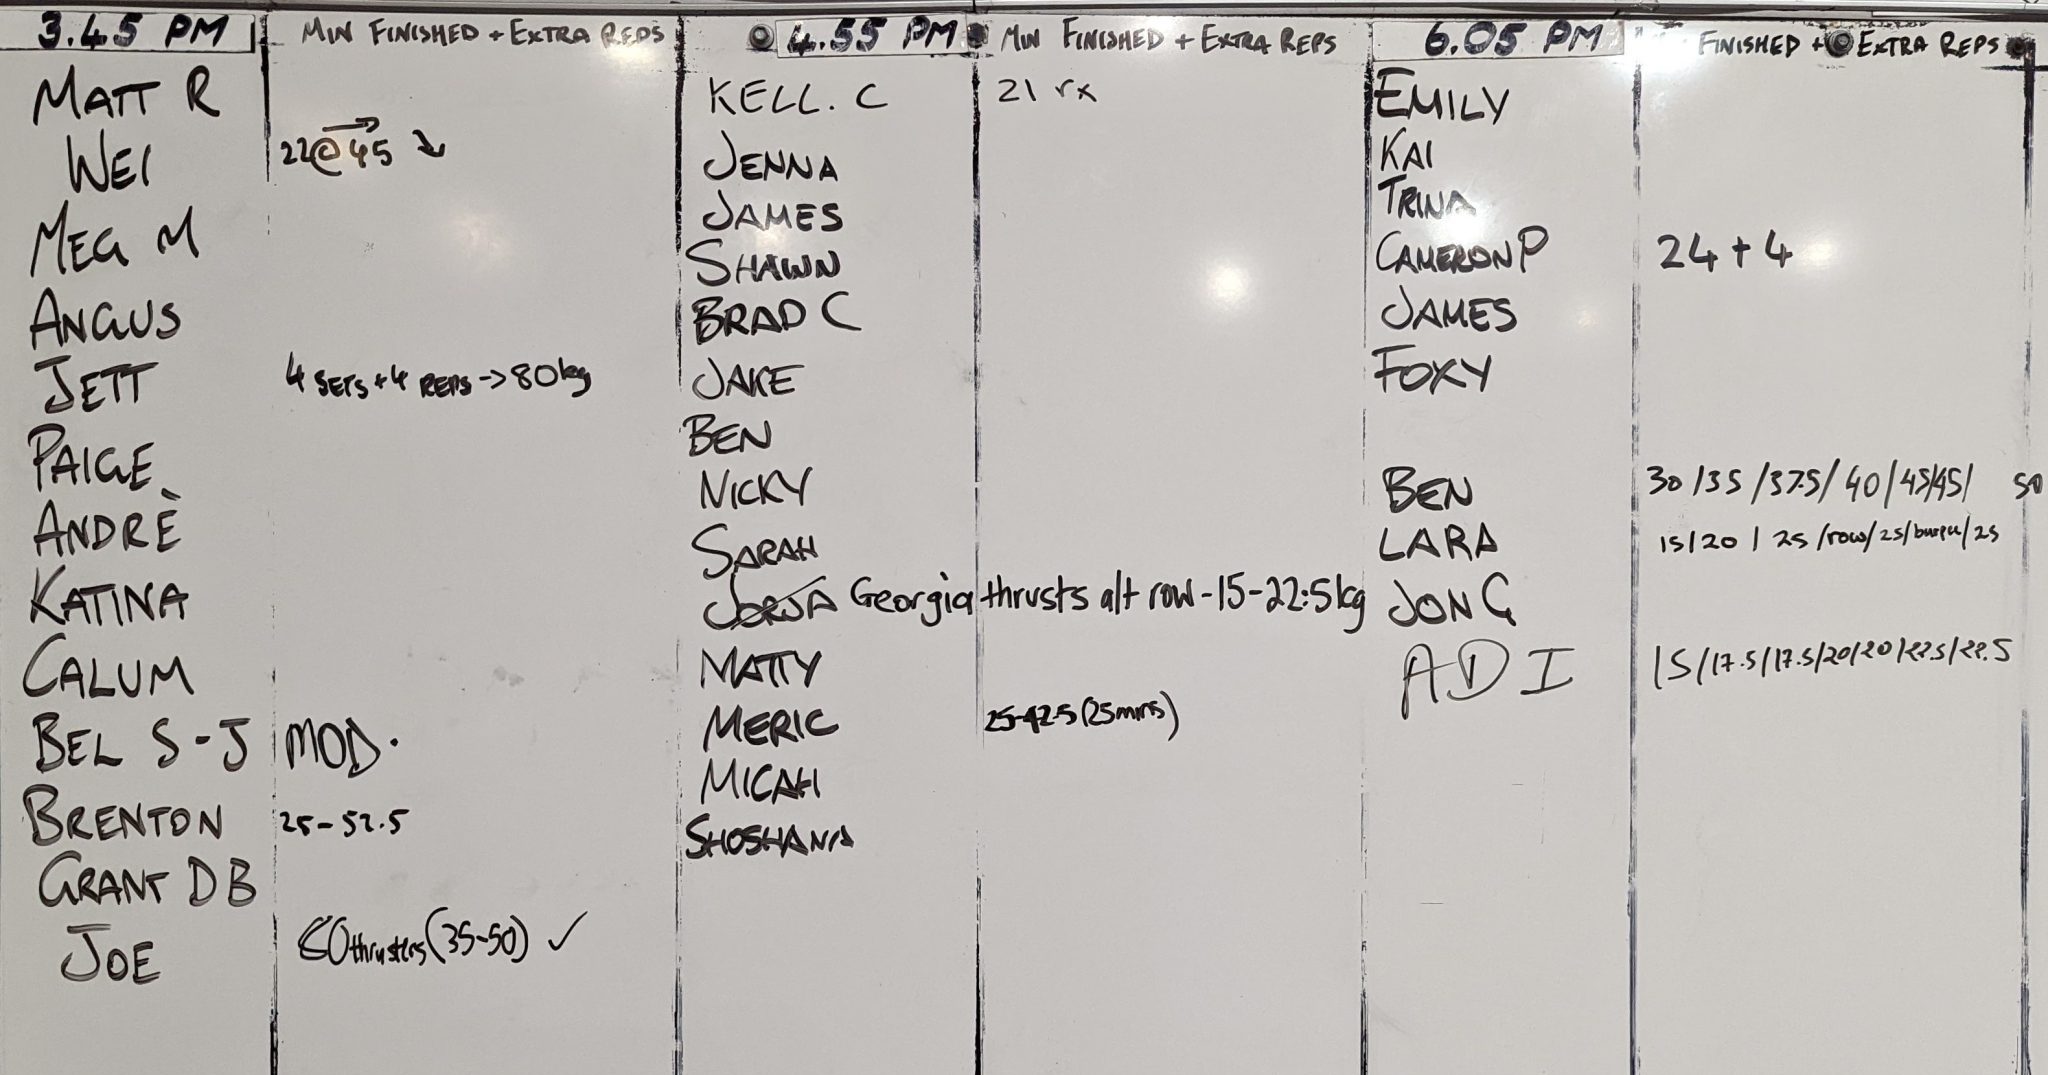 3.45 PM MIN FINISHED + EXTRA REPS
MATT R
WEI 22@45
MEG M
ANGUS
JETT 4 SETS + 4 REPS -> 80kg
PAIGE
ANDRÈ
KATINA
CALUM
BEL S-J MOD.
BRENTON 25-52.5
GRANT DB
JOE thrusters (35-50) ✓
4.55 PM MIN FINISHED + EXTRA REPS
KELL. C 21 rx
JENNA
JAMES
SHAWN
BRAD C
JAKE
BEN
NICKY
SARAH
JORJA Georgia thrusts alt row - 15-22.5kg
MATTY
MERIC 25-42.5 (25mins)
MICAH
SHOSHANA
6.05 PM FINISHED + EXTRA REPS
EMILY
KAI
TRINA
CAMERON P 24 + 4
JAMES
FOXY
BEN 30/35/37.5/40/45/45/ 50
LARA 15/20/25/row/25/burpee/25
JON G
ADI 15/17.5/17.5/20/20/22.5/22.5